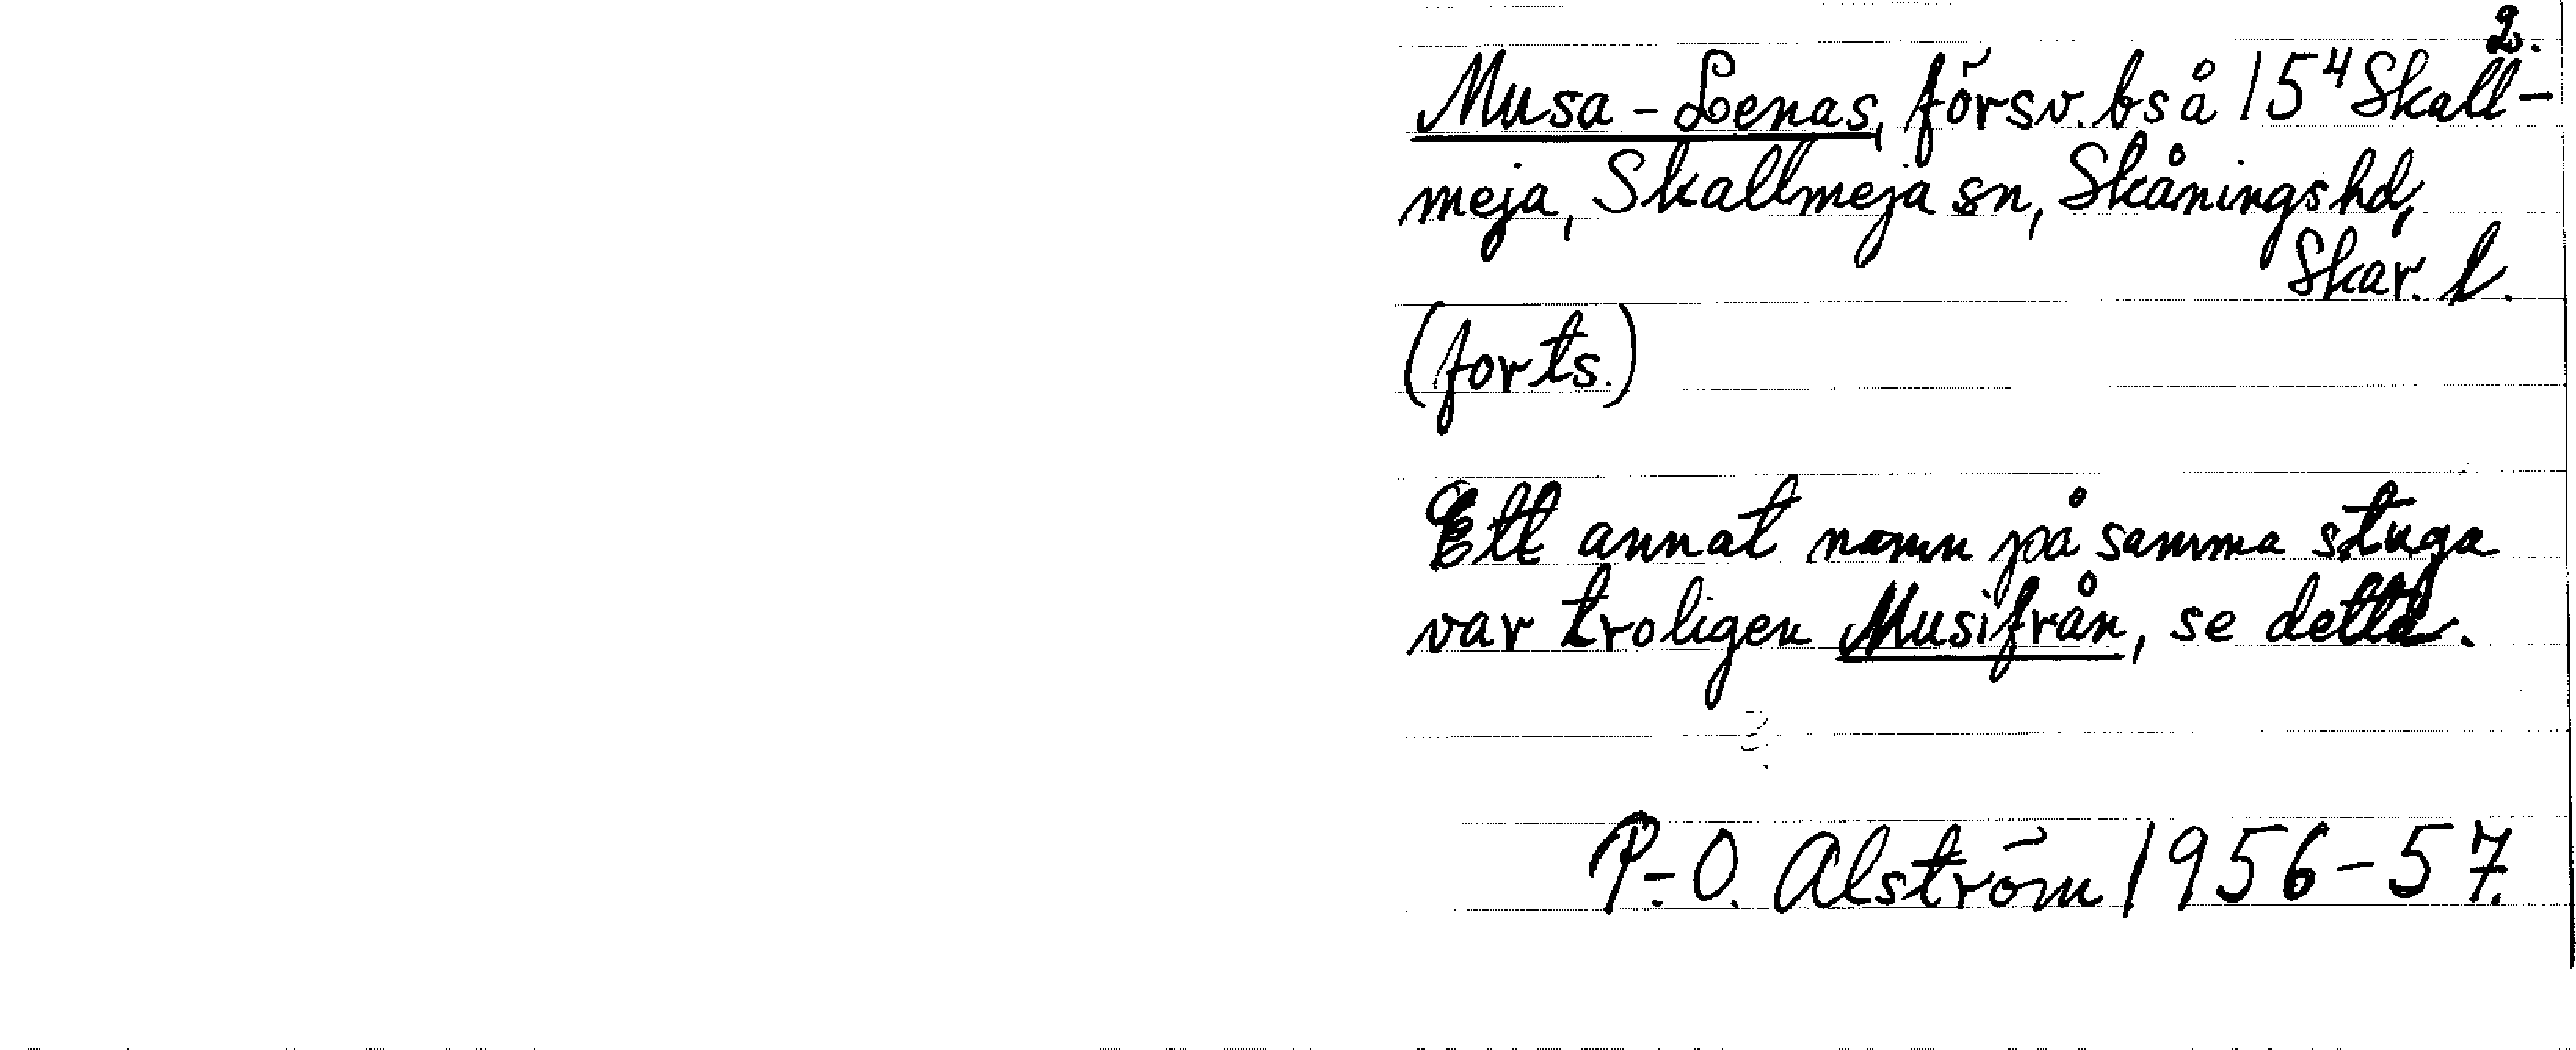 2.
Musa-Lenas, försv. bs å 15⁴ Skall-
meja, Skallmeja sn, Skånings hd,
Skar. l.
(forts.)
Ett annat namn på samma stuga
var troligen Musifrån, se detta.
P.-O. Alström 1956-57.